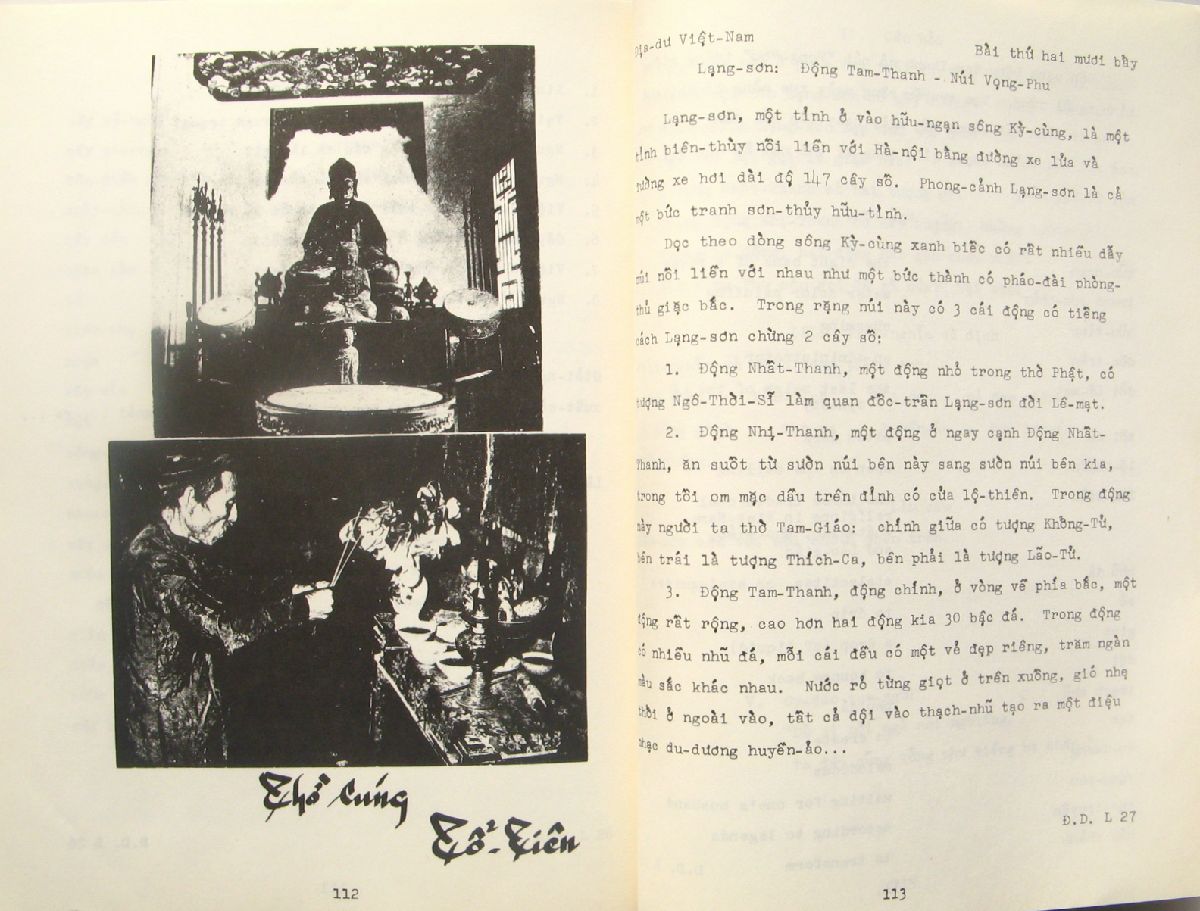 Thờ Cúng
Tổ-Tiên
112
Địa-dư Việt-Nam
Bài thứ hai mươi bảy
Lạng-sơn: Động Tam-Thanh - Núi Vọng-Phu
Lạng-sơn, một tỉnh ở vào hữu-ngạn sông Kỳ-cùng, là một
tỉnh biên-thùy nối liền với Hà-nội bằng đường xe lửa và
đường xe hơi dài độ 147 cây số. Phong-cảnh Lạng-sơn là cả
một bức tranh sơn-thủy hữu-tình.
Dọc theo dòng sông Kỳ-cùng xanh biếc có rất nhiều dẫy
núi nối liền với nhau như một bức thành có pháo-đài phòng-
thủ giặc bắc. Trong rặng núi này có 3 cái động có tiếng
cách Lạng-sơn chừng 2 cây số:
1. Động Nhất-Thanh, một động nhỏ trong thờ Phật, có
tượng Ngô-Thời-Sĩ làm quan đốc-trấn Lạng-sơn đời Lê-mạt.
2. Động Nhị-Thanh, một động ở ngay cạnh Động Nhất-
Thanh, ăn suốt từ sườn núi bên này sang sườn núi bên kia,
trong tối om mặc dầu trên đỉnh có cửa lộ-thiên. Trong động
này người ta thờ Tam-Giáo: chính giữa có tượng Khổng-Tử,
bên trái là tượng Thích-Ca, bên phải là tượng Lão-Tử.
3. Động Tam-Thanh, động chính, ở vòng về phía bắc, một
động rất rộng, cao hơn hai động kia 30 bậc đá. Trong động
có nhiều nhũ đá, mỗi cái đều có một vẻ đẹp riêng, trăm ngàn
mầu sắc khác nhau. Nước rỏ từng giọt ở trên xuống, gió nhẹ
thổi ở ngoài vào, tất cả dội vào thạch-nhũ tạo ra một điệu
nhạc du-dương huyền-ảo...
Đ.D. L 27
113